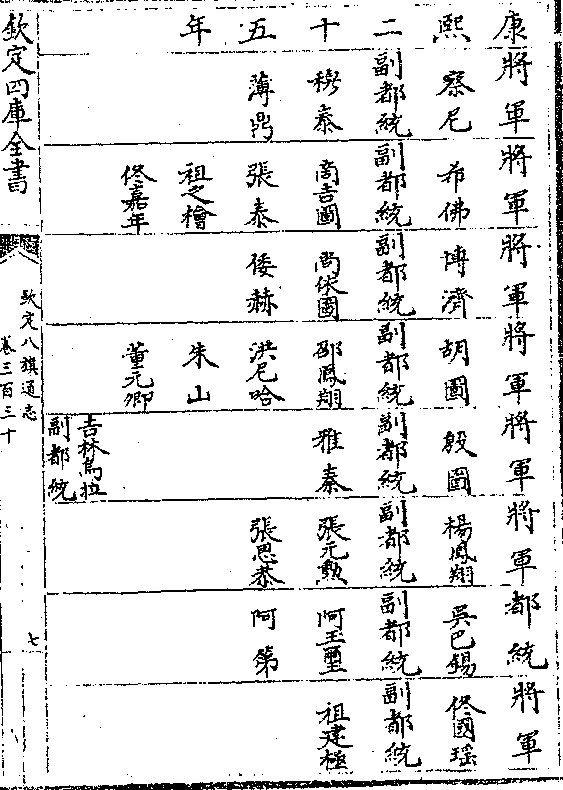 康熙二十五年
將軍 將軍 將軍 將軍 將軍 將軍 都統 將軍
察尼 希佛 博濟 胡圖 殷圖 楊鳳翔 吳巴錫 佟國瑤
副都統 副都統 副都統 副都統 副都統 副都統 副都統 副都統
穆泰 商吉圖 尚依圖 邵鳳翔 雅秦 張元勲 阿玉璽 祖建極
薄鼎 張泰 倭赫 洪尼哈 張思恭 阿第
祖之檜 朱山
佟嘉年 董元卿
吉林烏拉
副都統
欽定四庫全書
欽定八旗通志
卷三百三十
七